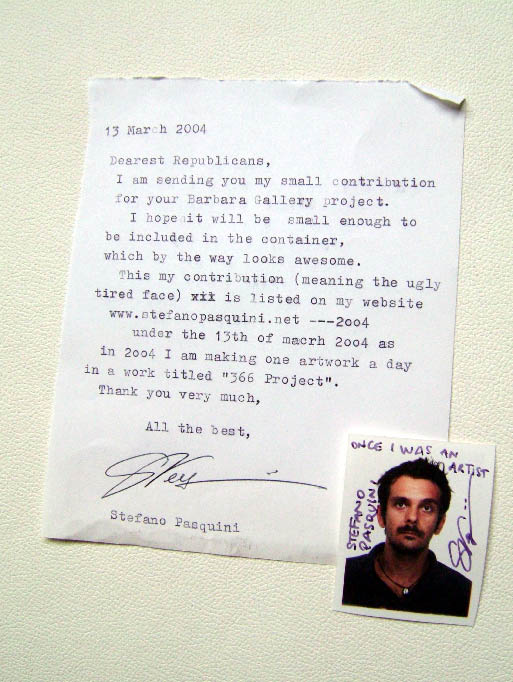 13 March 2004
Dearest Republicans,
I am sending you my small contribution
for your Barbara Gallery project.
I hope it will be small enough to
be included in the container,
which by the way looks awesome.
This my contribution (meaning the ugly
tired face) xii is listed on my website
www.stefanopasquini.net ---2004
under the 13th of macrh 2004 as
in 2004 I am making one artwork a day
in a work titled "366 Project".
Thank you very much,
All the best,
Stefano Pasquini
ONCE I WAS AN
ARTIST
STEFANO
PASQUINI